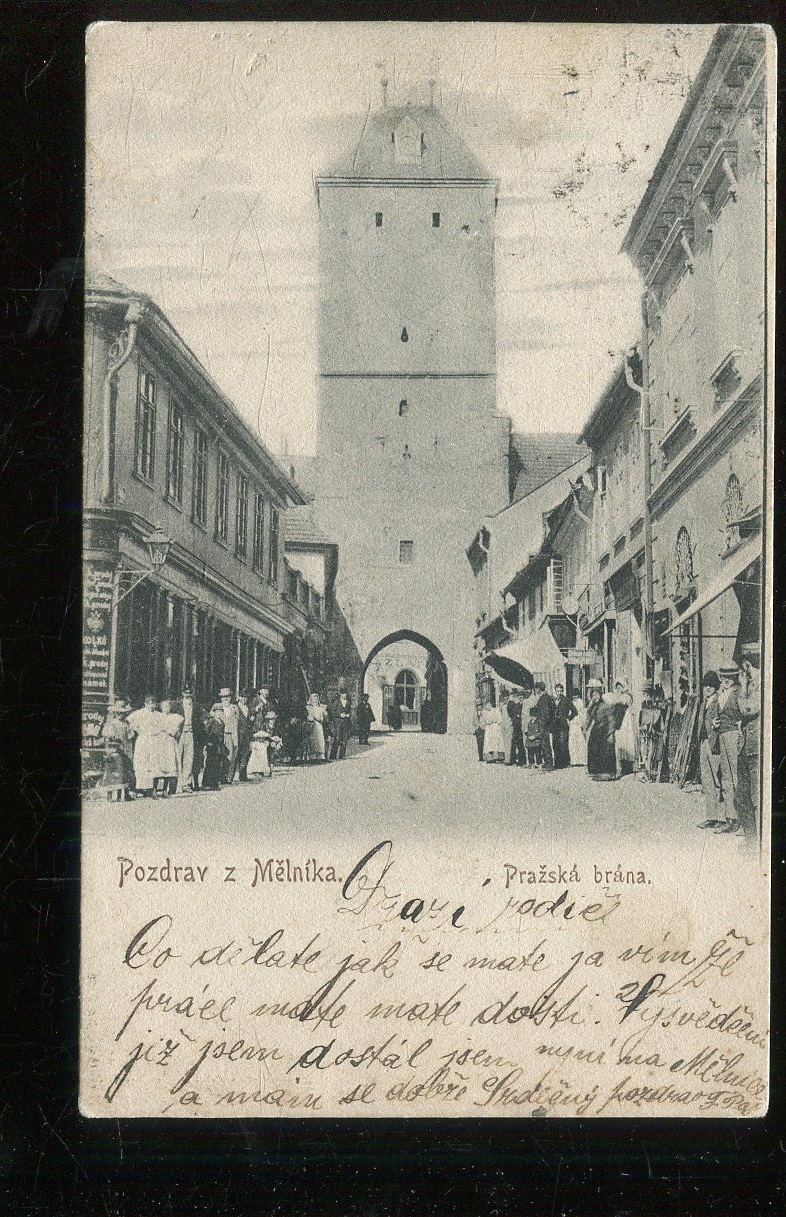 KOLKŮ
Pozdrav z Mělníka.
Pražská brána.
Drazí rodiče
Co dělate jak se mate ja vím že
práce mate mate dosti. Vysvědčení
již jsem dostál jsem nyní na Mělnice
a mám se dobře Srdečný pozdrav